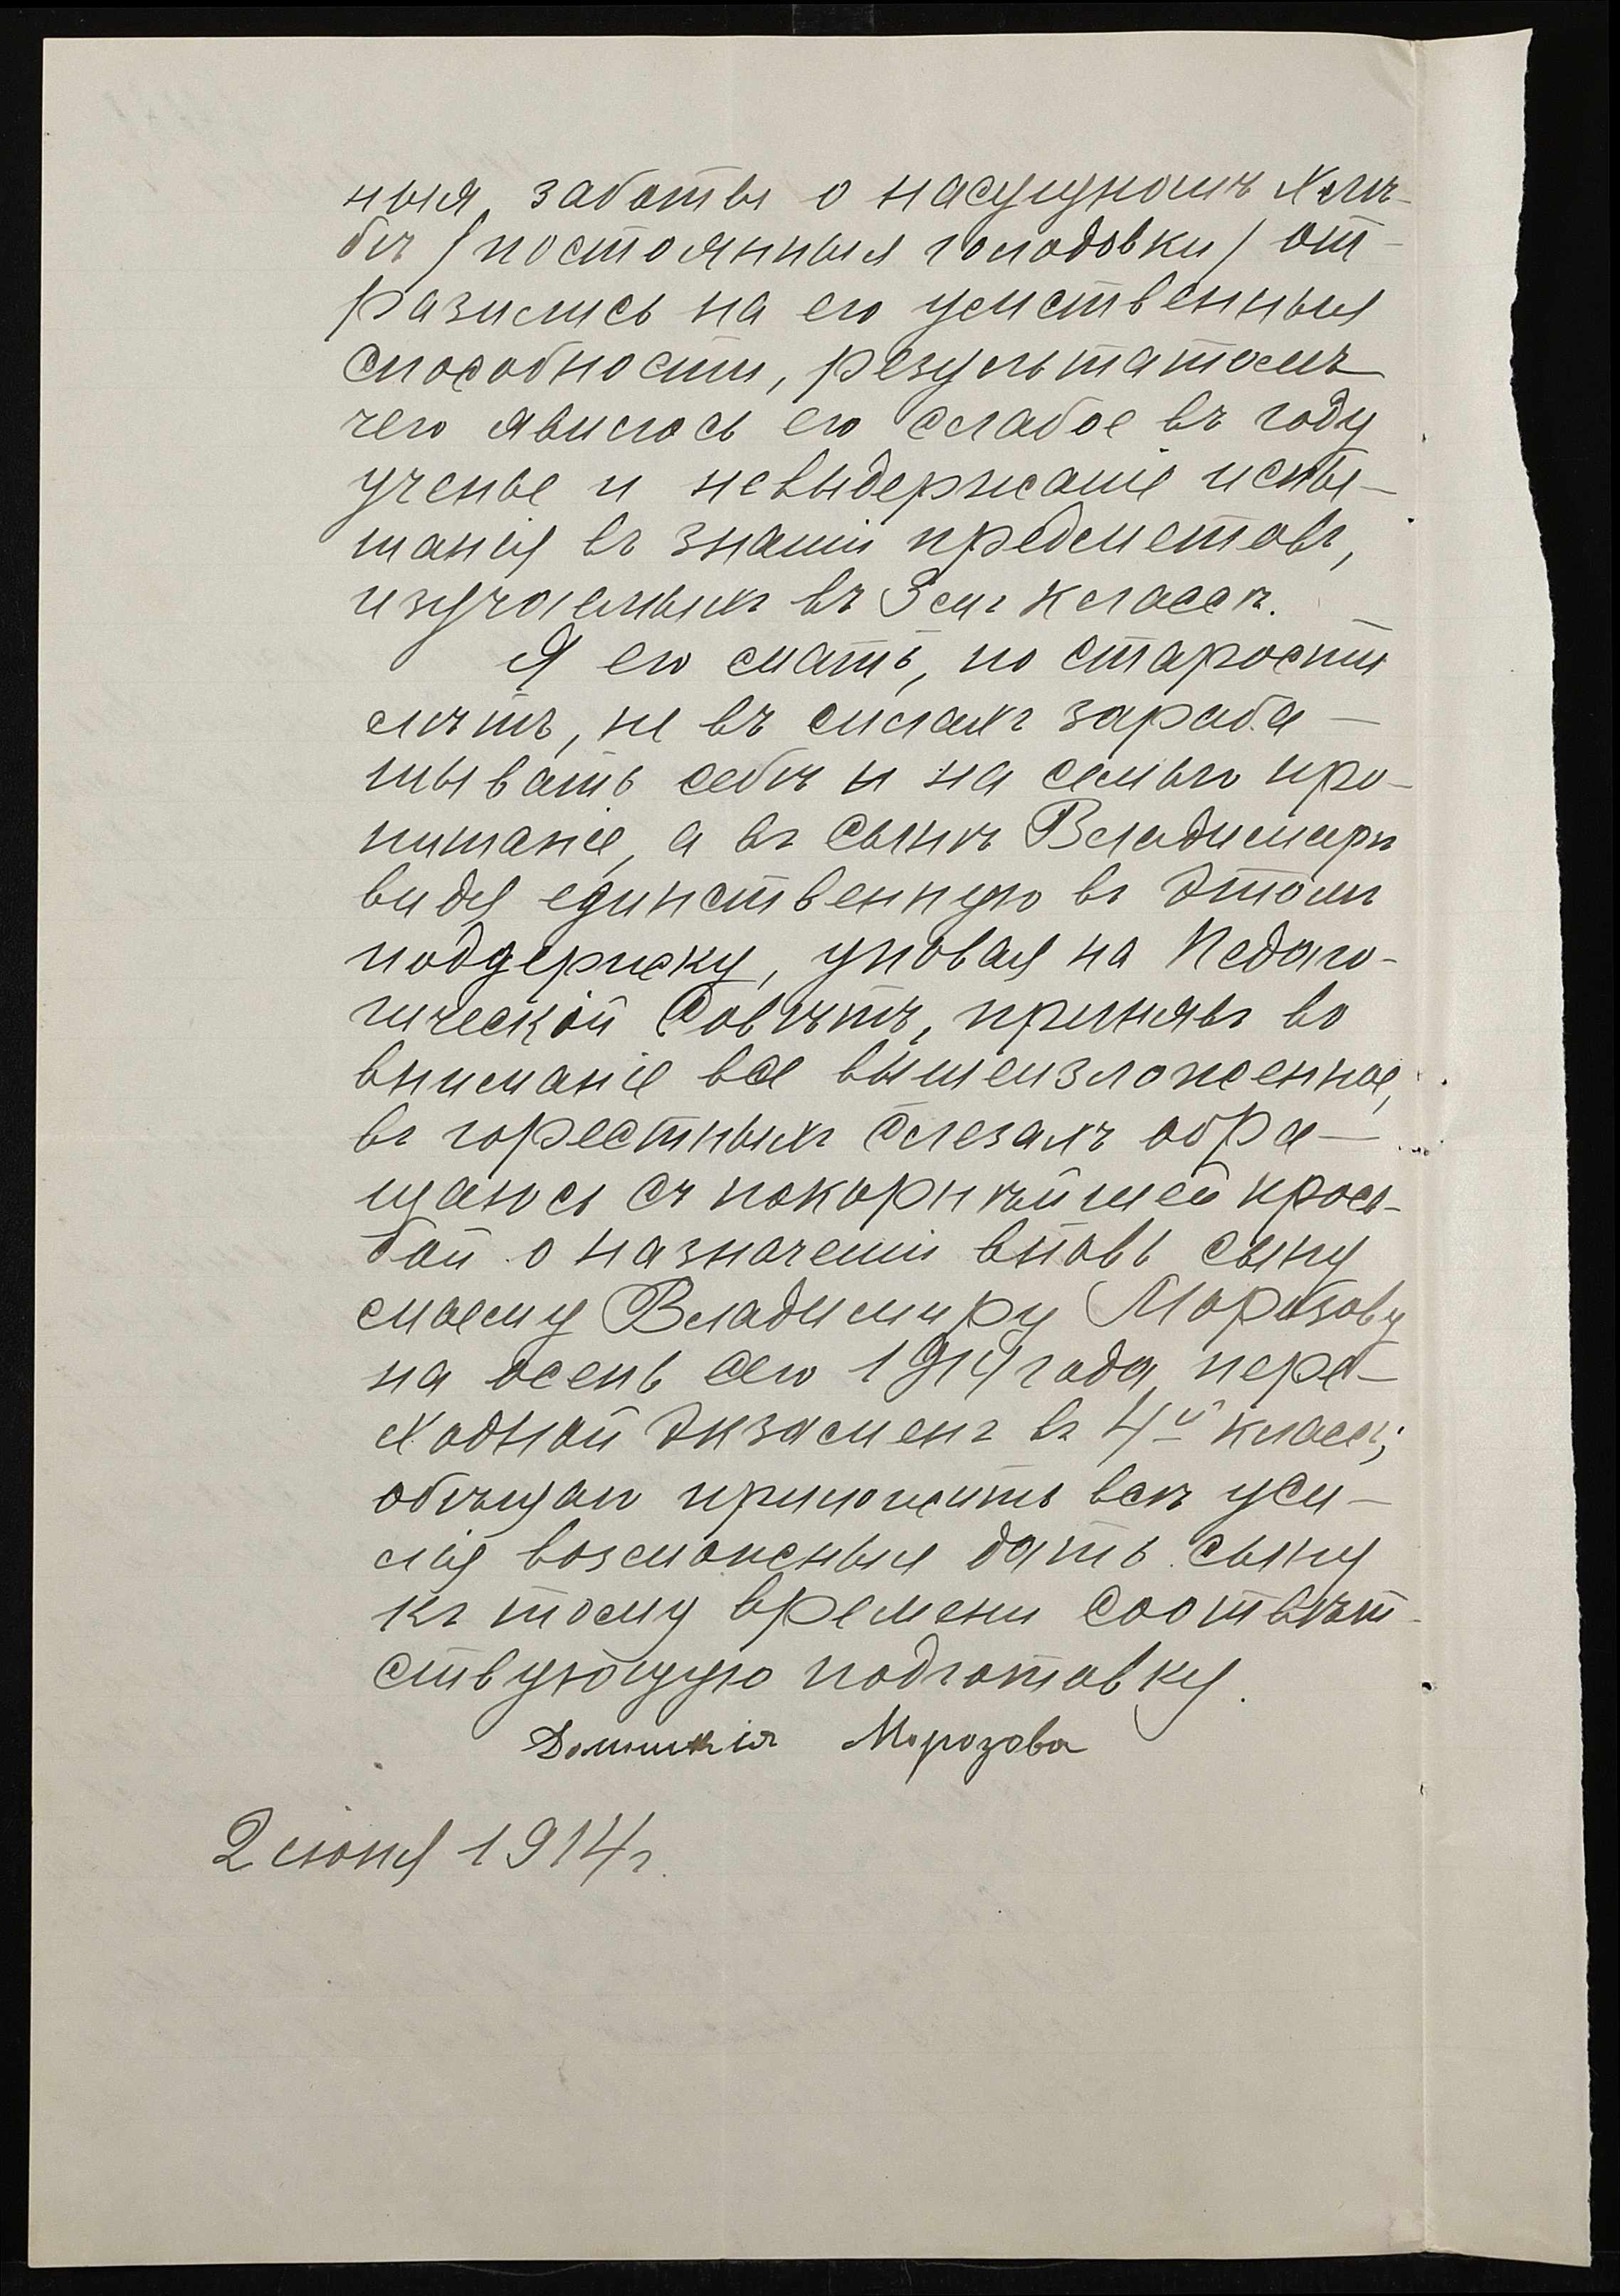 ныя заботы о насущномъ хлѣ-
бѣ (постоянныя голодовки) от-
разились на его умственныя
способности, результатомъ
чего явилось его слабое въ году
ученье и невыдержаніе испы-
танія въ знаніи предметовъ,
изучаемыхъ въ 3емъ классѣ.
Я его мать, по старости
лѣтъ, не въ силахъ зараба-
тывать себѣ и на семью про-
питаніе, а въ сынѣ Владимирѣ
видя единственную въ этомъ
поддержку, уповая на Педаго-
гическій Совѣтъ, принявъ во
вниманіе все вышеизложенное,
въ горестныхъ слезахъ обра-
щаюсь съ покорнѣйшей прось-
бой о назначеніи вновь сыну
моему Владимиру Морозову
на осень сего 1914 года пере-
ходной экзаменъ въ 4й классъ;
обѣщаю приложить всѣ уси-
лія возможныя дать сыну
къ тому времени соотвѣт-
ствующую подготовку.
Домникія Морозова
2 іюня 1914 г.